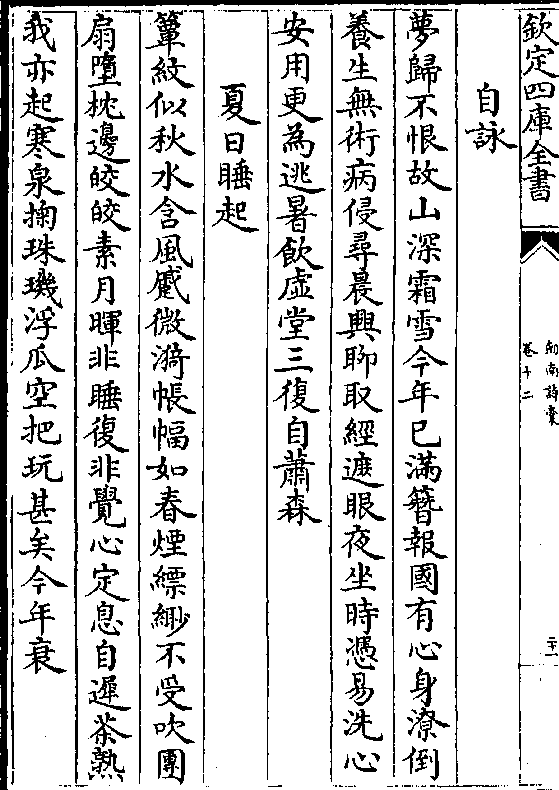 欽定四庫全書
劍南詩稾
卷十二
二十一
自詠
夢歸不恨故山深霜雪今年已滿簪報國有心身潦倒
養生無術病侵尋晨興聊取經遮眼夜坐時憑易洗心
安用更為逃暑飲虛堂三復自蕭森
夏日睡起
簟紋似秋水含風蹙微漪帳幅如春煙縹緲不受吹團
扇墮枕邊皎皎素月暉非睡復非覺心定息自遲茶熟
我亦起寒泉掬珠璣浮瓜空把玩甚矣今年衰